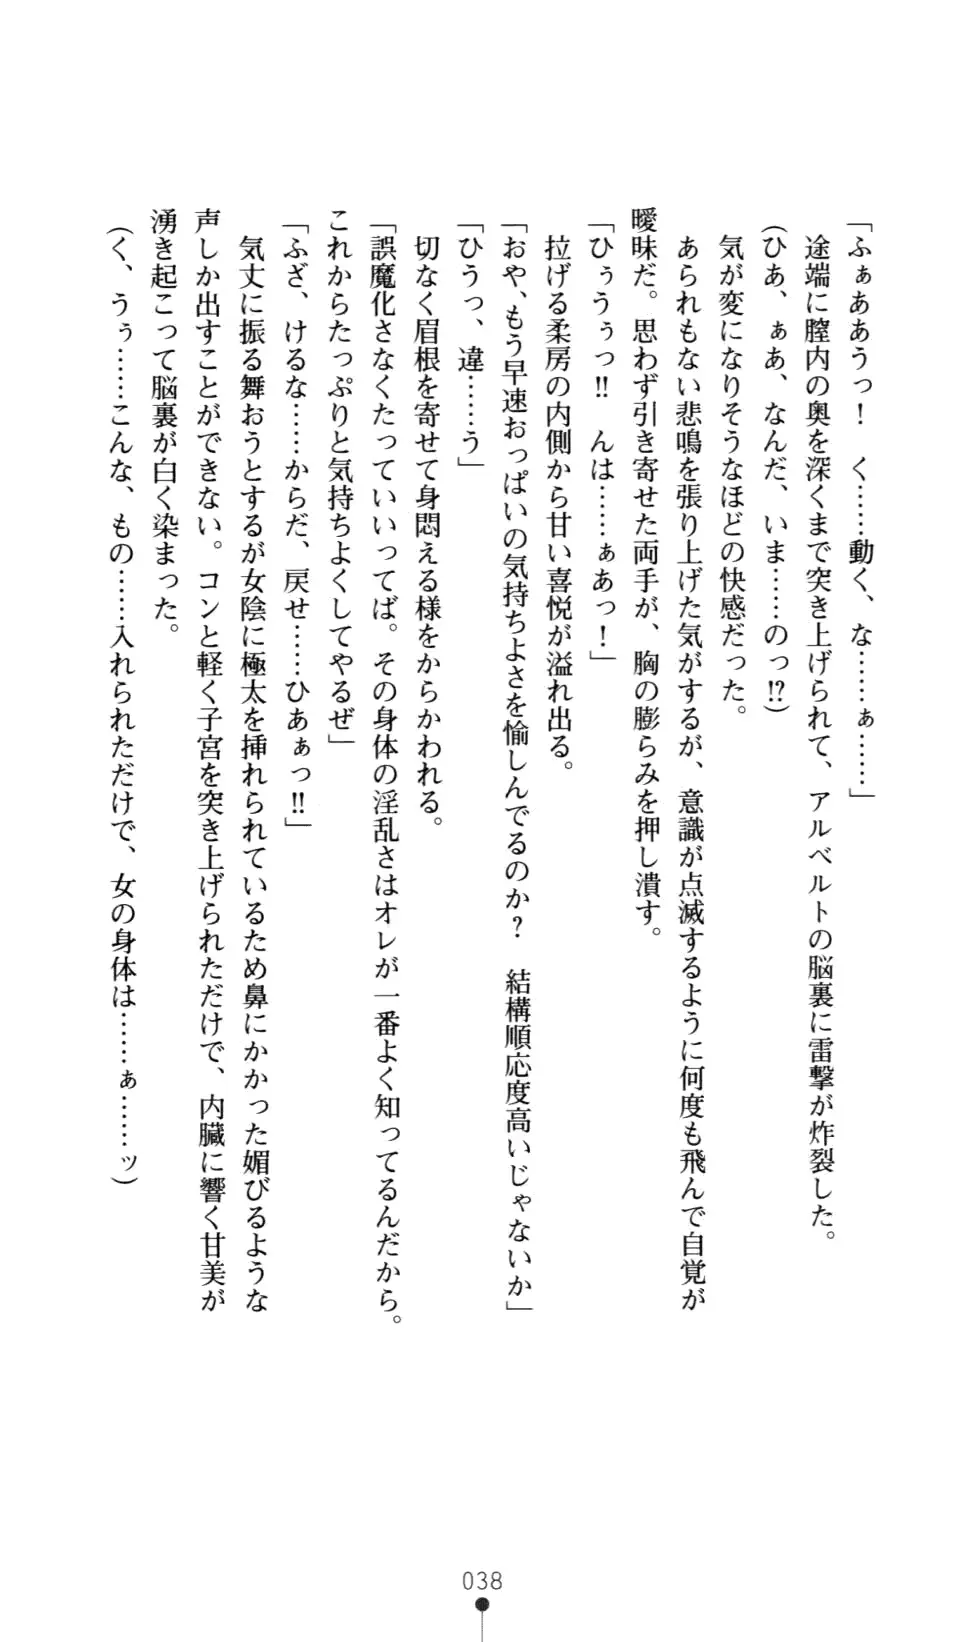 「ふぁああうっ！　く……動く、な……ぁ……」
　途端に膣内の奥を深くまで突き上げられて、アルベルトの脳裏に雷撃が炸裂した。
（ひあ、ぁあ、なんだ、いま……のっ!?）
　気が変になりそうなほどの快感だった。
　あられもない悲鳴を張り上げた気がするが、意識が点滅するように何度も飛んで自覚が
曖昧だ。思わず引き寄せた両手が、胸の膨らみを押し潰す。
「ひぅうぅっ!!　んは……ぁあっ！」
　拉げる柔房の内側から甘い喜悦が溢れ出る。
「おや、もう早速おっぱいの気持ちよさを愉しんでるのか？　結構順応度高いじゃないか」
「ひうっ、違……う」
　切なく眉根を寄せて身悶える様をからかわれる。
「誤魔化さなくたっていいってば。その身体の淫乱さはオレが一番よく知ってるんだから。
これからたっぷりと気持ちよくしてやるぜ」
「ふざ、けるな……からだ、戻せ……ひあぁっ!!」
　気丈に振る舞おうとするが女陰に極太を挿れられているため鼻にかかった媚びるような
声しか出すことができない。コンと軽く子宮を突き上げられただけで、内臓に響く甘美が
湧き起こって脳裏が白く染まった。
（く、うぅ……こんな、もの……入れられただけで、女の身体は……ぁ……ッ）
038